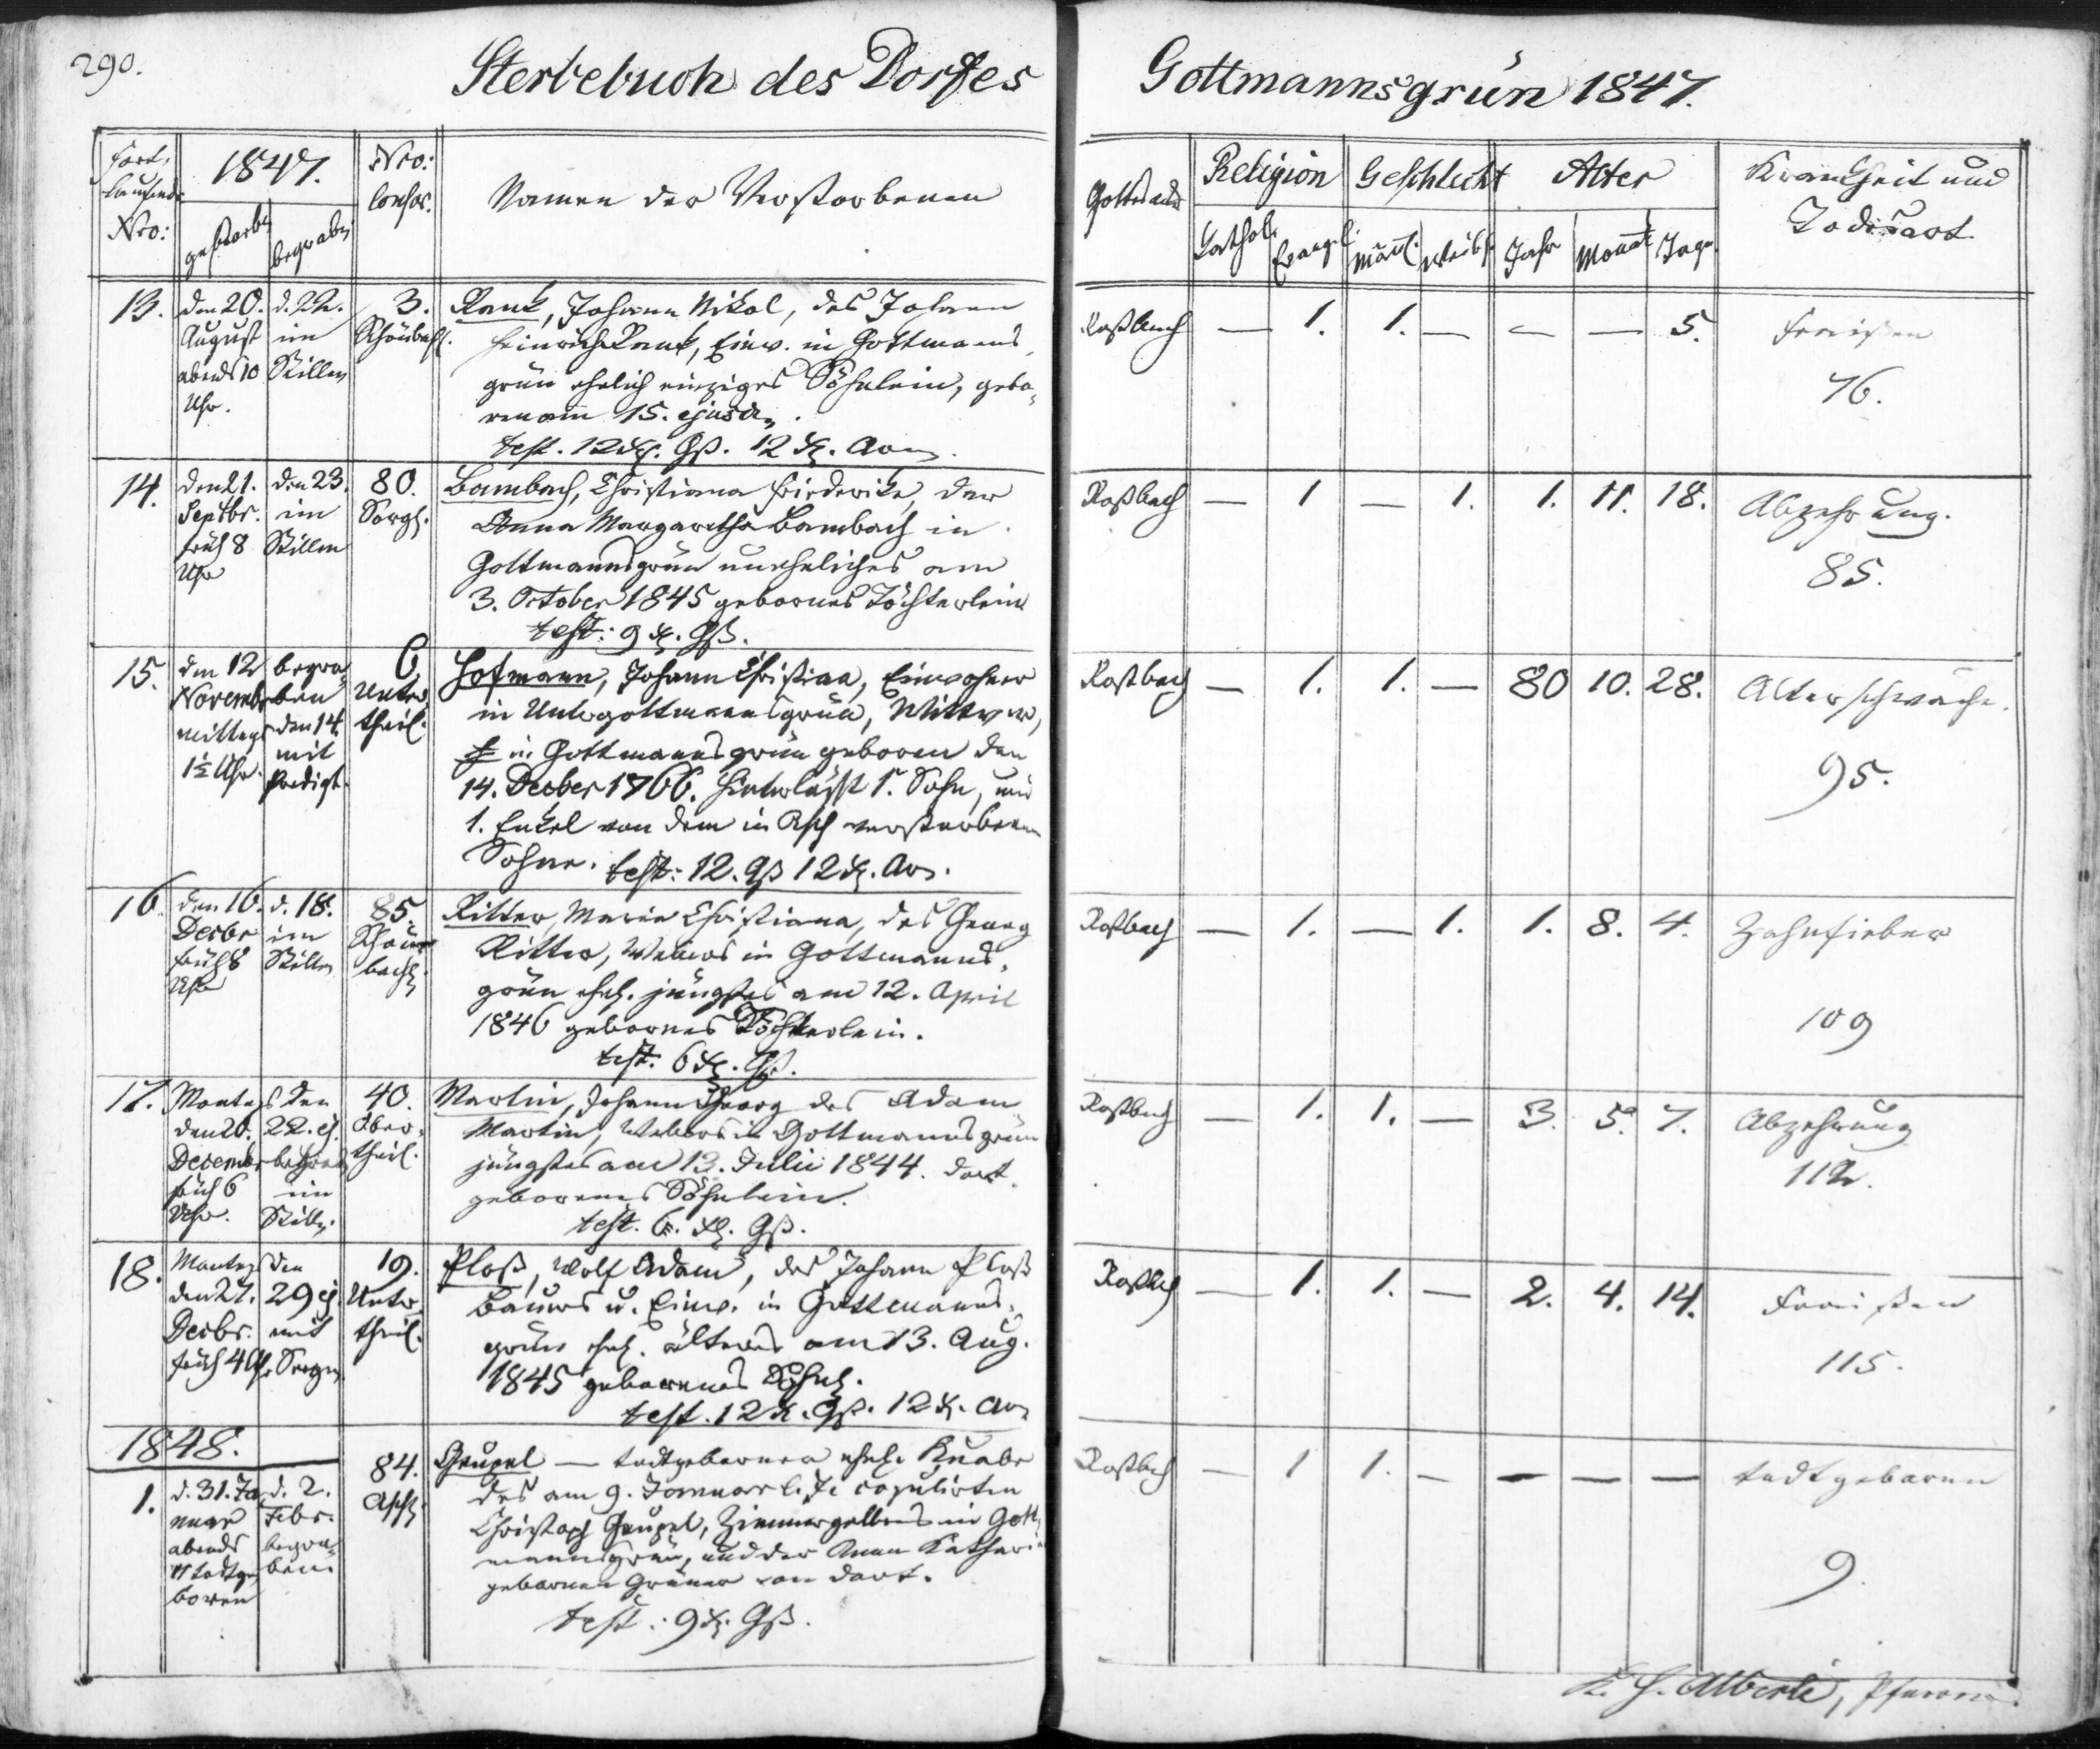 290.
Sterbebuch des Dorfes Gottmannsgrün 1847.
Fort-
laufende
Nro:
1847.
gestorben
begraben
Nro:
conscr.
Namen der Verstorbenen
Gottesacker
Religion
Kathol.
Evangel.
Geschlecht
Männl.
Weibl.
Alter
Jahr
Monat
Tage
Krankheit und
Todesart.
13.
den 20.
August
abends 10
Uhr.
d. 22.
im
Stillen
3.
Schönbach.
Rank, Johann Nikol, des Johann
Heinrich Rank, Einw. in Gottmanns-
grün ehelich einziges Söhnlein, gebo-
ren am 15. ejusd.
test. 12 x. Gß. 12 x. Av.
Roßbach — 1. 1. — — — 5.
Fraisen
76.
14.
den 21.
Septbr.
früh 8
Uhr
den 23.
im
Stillen
80.
Sorg.
Bambach, Christiana Friederike, der
Anna Margaretha Bambach in
Gottmannsgrün uneheliches am
3. October 1845 gebornes Töchterlein
test: 9 x. Gß.
Roßbach — 1 — 1. 1. 11. 18.
Abzehrung.
85.
15.
den 12
Novembr
mittags
1½ Uhr.
begra-
ben
den 14.
mit
Predigt.
6
Unter-
theil.
Hofmann, Johann Christian, Einwohner
in Untergottmannsgrün, Wittwer,
in Gottmannsgrün geboren den
14. Decber 1766. hinterläßt 1. Sohn, und
1. Enkel von dem in Asch verstorbenen
Sohne. test: 12. Gß 12 x. Av.
Roßbach — 1. 1. — 80 10. 28.
Altersschwäche.
95.
16.
den 16.
Decbr
früh 8
Uhr
d. 18.
im
Stillen
85.
Schön-
bach.
Ritter, Maria Christiana, des Georg
Ritter, Webers in Gottmanns-
grün ehel. jüngstes am 12. April
1846 gebornes Töchterlein.
test. 6 x. Gß.
Roßbach — 1. — 1. 1. 8. 4.
Zahnfieber
109
17.
Montags
den 20.
Decembr
früh 6
Uhr.
den
22. ej.
begrab.
im
Stillen.
40.
Ober-
theil.
Martin, Johann Georg des Adam
Martin, Webers in Gottmannsgrün
jüngstes am 13. Julii 1844. dort
geborenes Söhnlein.
test. 6. x. Gß.
Roßbach — 1. 1. — 3. 5. 7.
Abzehrung
112.
18.
Montags
den 27.
Decbr.
früh 4 Uhr
den
29 ej.
mit
Segen
19.
Unter-
theil.
Ploß, Wolf Adam, des Johann Ploß
Bauers u. Einw. in Gottmanns-
grün ehel. älteres am 13. Aug.
1845 geborenes Söhnl.
test. 12 x. Gß. 12 x. Av.
Roßbch — 1. 1. — 2. 4. 14.
Fraisen
115.
1848.
1.
d. 31. Ja-
nuar
abends
11 todtge-
boren
d. 2.
Febr.
begra-
ben.
84.
Asch.
Geupel — todtgeborner ehel. Knabe
des am 9. Januar l. J. copulirten
Christoph Geupel, Zimmergesellens in Gott-
mannsgrün, und der Anna Katharin
gebornen Grüner von dort.
test: 9 x. Gß.
Roßbch — 1 1. — — — —
todtgeboren
9.
Alberti, Pfarrer.